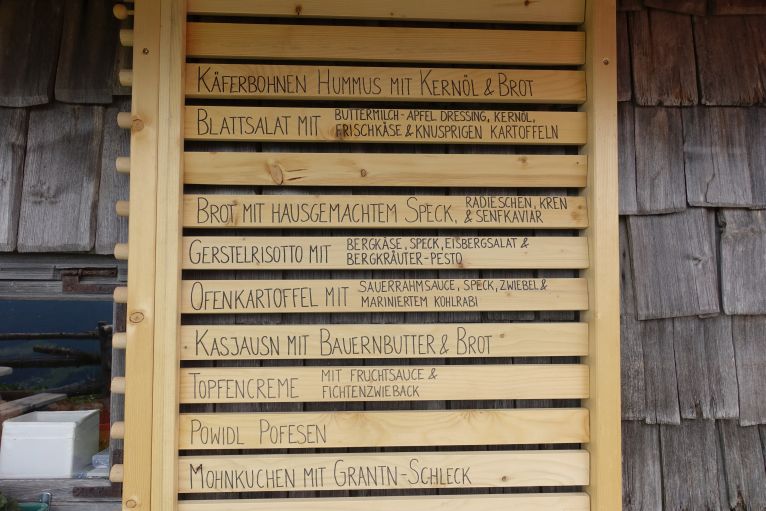 KÄFERBOHNEN HUMMUS MIT KERNÖL & BROT
BLATTSALAT MIT BUTTERMILCH-APFEL DRESSING, KERNÖL,
FRISCHKÄSE & KNUSPRIGEN KARTOFFELN
BROT MIT HAUSGEMACHTEM SPECK, RADIESCHEN, KREN
& SENFKAVIAR
GERSTELRISOTTO MIT BERGKÄSE, SPECK, EISBERGSALAT &
BERGKRÄUTER-PESTO
OFENKARTOFFEL MIT SAUERRAHMSAUCE, SPECK, ZWIEBEL &
MARINIERTEM KOHLRABI
KASJAUSN MIT BAUERNBUTTER & BROT
TOPFENCREME MIT FRUCHTSAUCE &
FICHTENZWIEBACK
POWIDL POFESEN
MOHNKUCHEN MIT GRANTN-SCHLECK